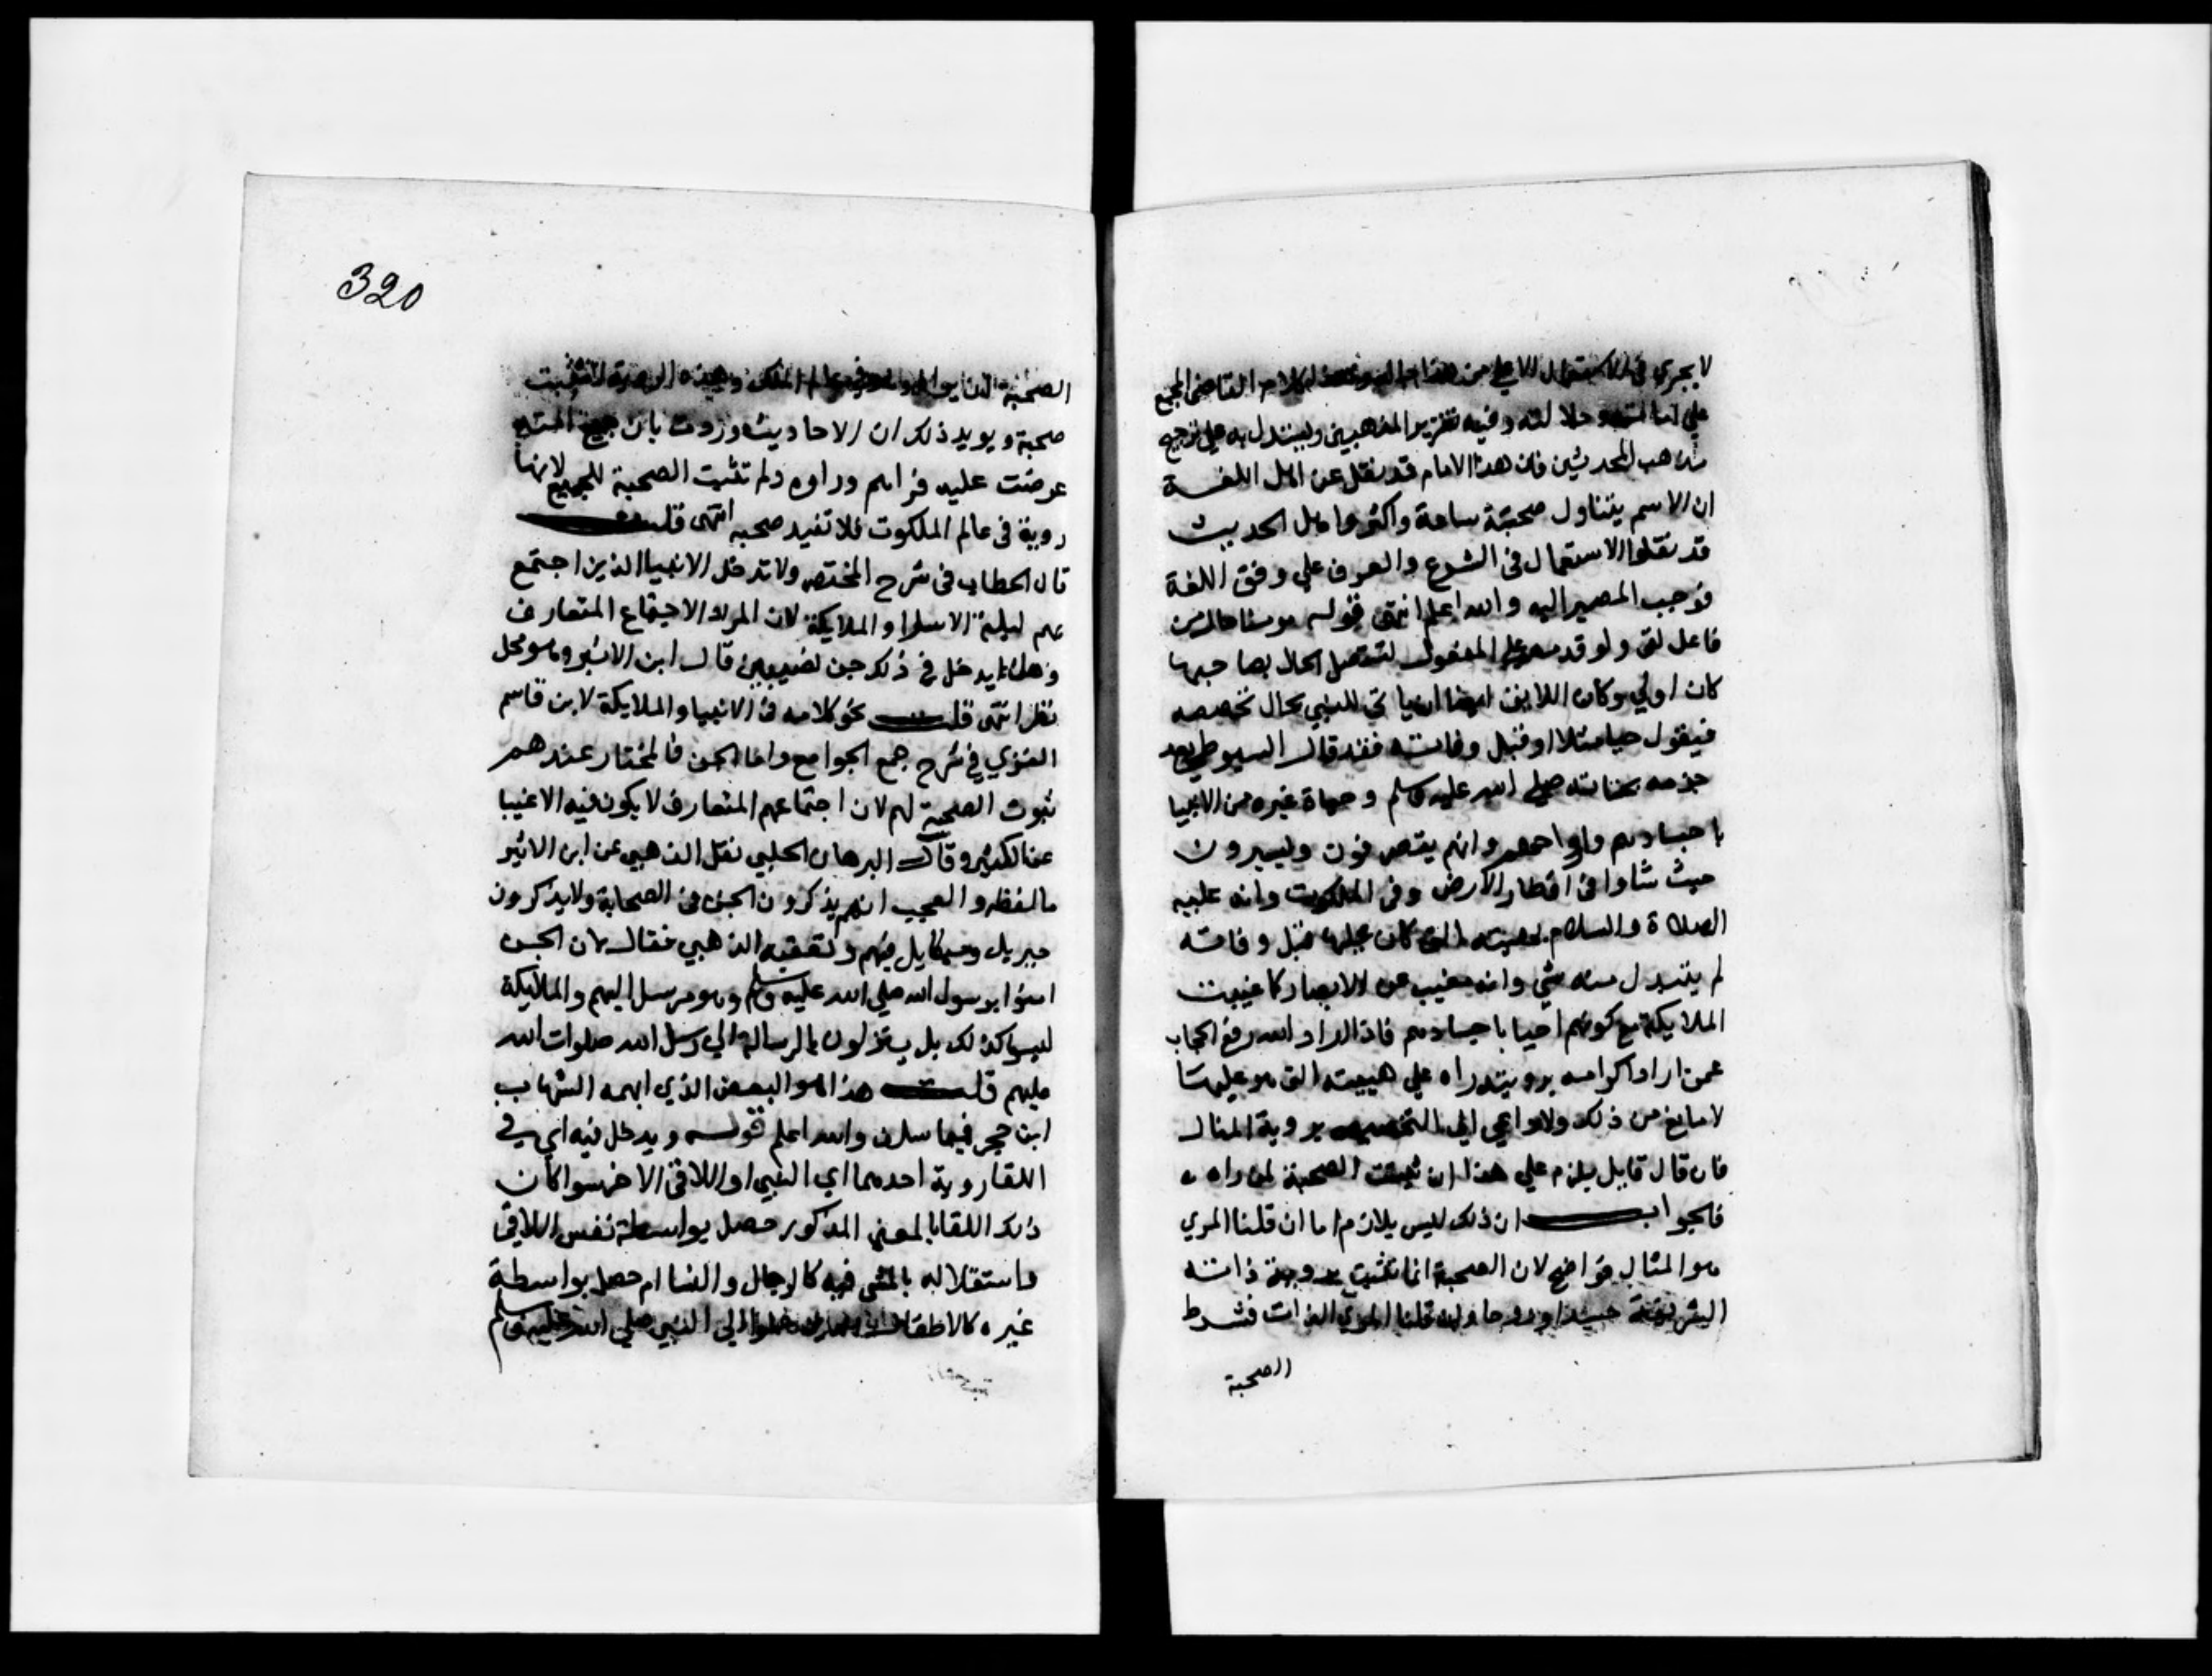 لا يجري في الاستعمال الا على من هذا كلام القاضي المجمع
على امانته وجلالته وفيه تقرير المذهبين ويستدل به على ترجيح
مذهب المحدثين فان هذا الامام قد نقل عن اهل اللغة
ان الاسم يتناول صحبة ساعة واكثر واهل الحديث
قد نقلوا الاستعمال في الشرع والعرف على وفق اللغة
فوجب المصير اليه والله اعلم انتهى قوله مومنا حال من
فاعل لقى ولو قدمه على المفعول لتتصل الحال بصاحبها
كان اولى وكان اللايق ايضا ان ياتي للنبي بحال تخصصه
فيقول حيا مثلا او قبل وفاته فقد قال السيوطي بعد
جزمه بحياته صلى الله عليه وسلم وحياة غيره من الانبيا
باجسادهم وارواحهم وانهم يتصرفون ويسيرون
حيث شاوا في اقطار الارض وفي الملكوت وانه عليه
الصلاة والسلام بهيئته التي كان عليها قبل وفاته
لم يتبدل منه شي وانه مغيب عن الابصار كما غيبت
الملايكة مع كونهم احيا باجسادهم فاذا اراد الله رفع الحجاب
عمن اراد اكرامه برويته راه على هيئته التي هو عليها
لا مانع من ذلك ولا داعي الى التخصيص بروية المثال
فان قال قايل يلزم على هذا ان تثبت الصحبة لمن راه
فالجواب ان ذلك ليس بلازم اما ان قلنا المري
هو المثال فواضح لان الصحبة انما تثبت بروية ذاته
الشريفة جسدا وروحا وان قلنا المري الذات فشرط
الصحبة
320
الصحبة ان يراه وهو في عالم الملك وهذه الروية لا تثبت
صحبة ويويد ذلك ان الاحاديث وردت بان جميع امته
عرضت عليه فراهم وراوه ولم تثبت الصحبة للجميع لانها
روية في عالم الملكوت فلا تفيد صحبه انتهى قلت
قال الحطاب في شرح المختصر ولا تدخل الانبيا الذين اجتمع
بهم ليلة الاسرا والملايكة لان المراد الاجتماع المتعارف
وهل يدخل في ذلك جن نصيبين قال ابن الاثير وهو محل
نظر انتهى قلت نحو كلامه في الانبيا والملايكة لابن قاسم
الغزي في شرح جمع الجوامع واما الجن فالمختار عندهم
ثبوت الصحبة لهم لان اجتماعهم المتعارف لا يكون فيه الاغيبا
عنا لكثير وقال البرهان الحلبي نقل الذهبي عن ابن الاثير
ما لفظه والعجب انهم يذكرون الجن في الصحابة ولا يذكرون
جبريل وميكايل فيهم وتعقبه الذهبي فقال لان الجن
امنوا برسول الله صلى الله عليه وسلم وهو مرسل اليهم والملايكة
ليسوا كذلك بل ينزلون بالرسالة الى رسل الله صلوات الله
عليهم قلت هذا هو البعض الذي ابهمه الشهاب
ابن حجر فيما سلف والله اعلم قوله ويدخل فيه اي في
اللقا روية احدهما اي النبي او اللاقي الاخر سوا كان
ذلك اللقا بالمعنى المذكور حصل بواسطة نفس اللاقي
واستقلاله بالمشي فيه كالرجال والنسا ام حصل بواسطة
غيره كالاطفال الى النبي صلى الله عليه وسلم